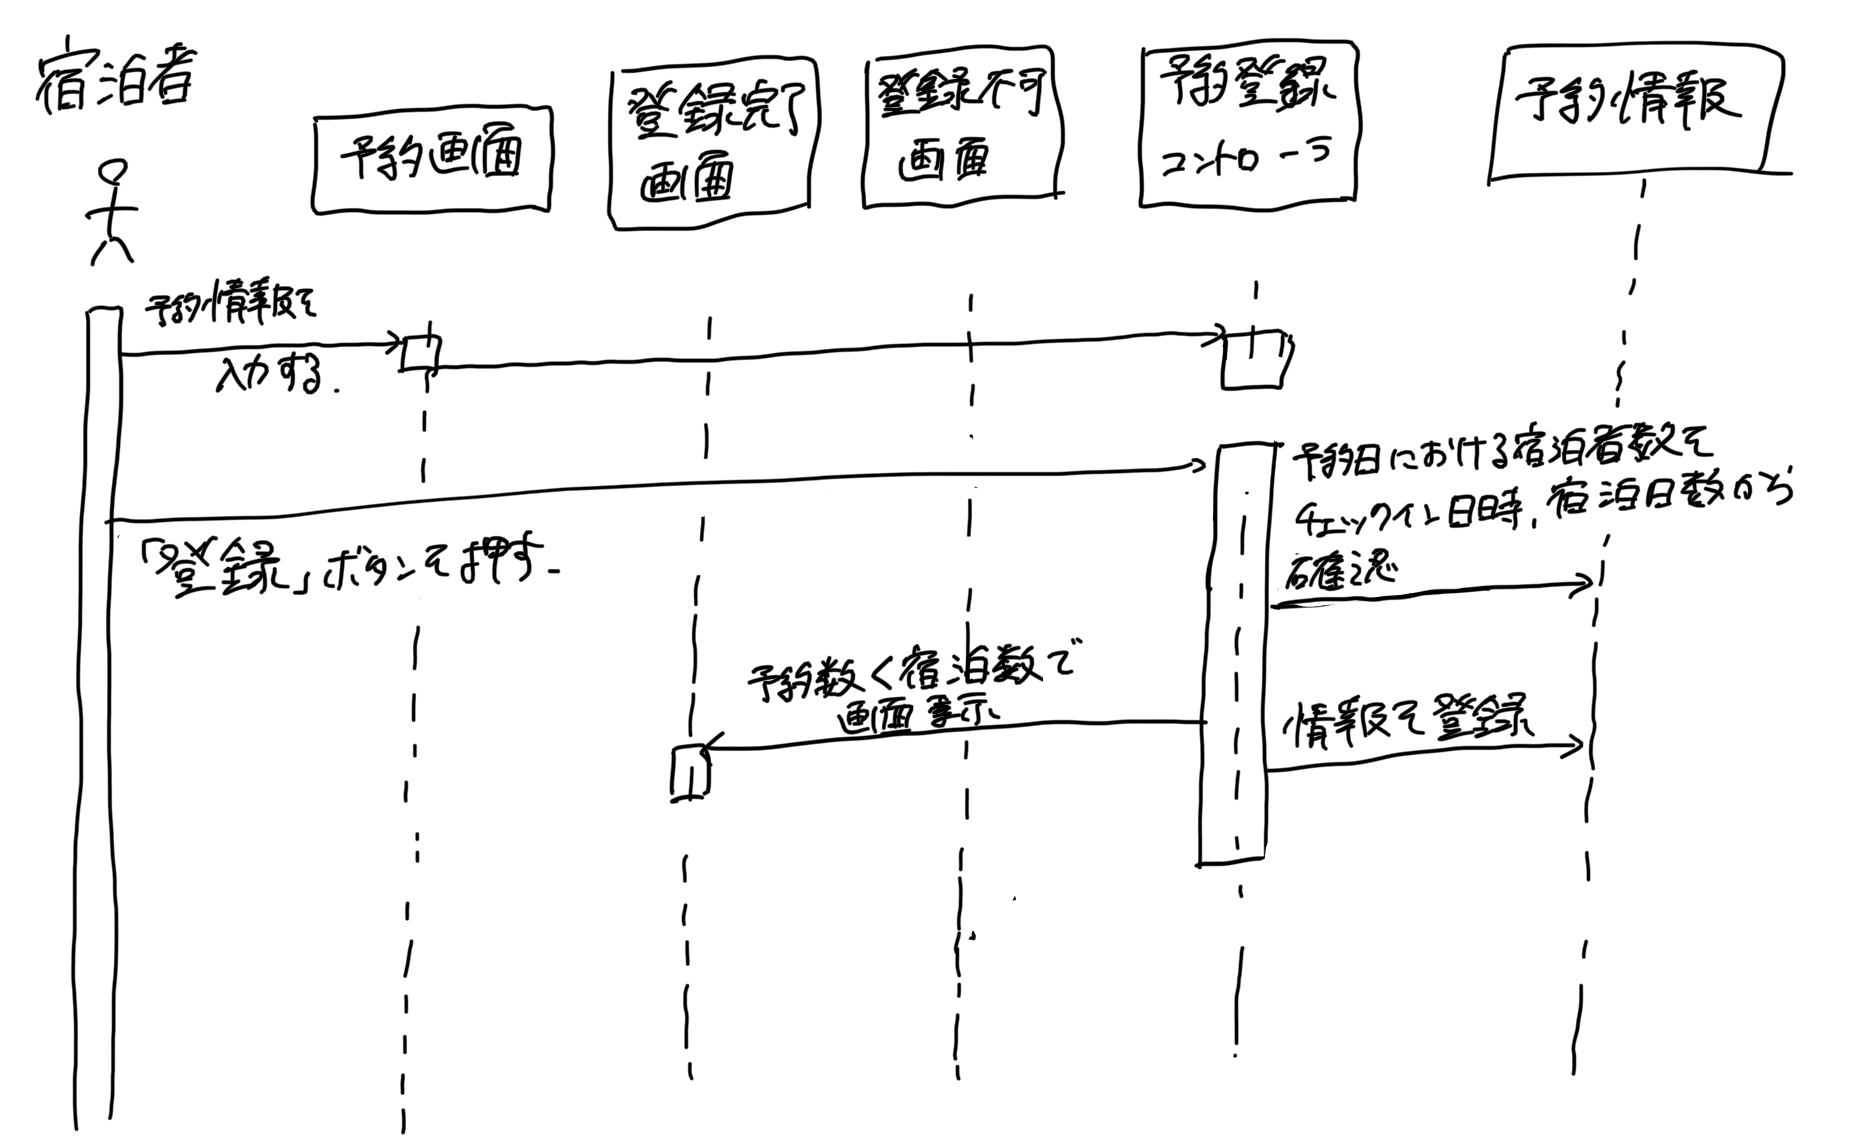 宿泊者
予約画面
登録完了
画面
登録不可
画面
予約登録
コントローラ
予約情報
予約情報を
入力する.
「登録」ボタンを押す.
予約日における宿泊者数を
チェックイン日時,宿泊日数から
確認
予約数<宿泊数で
画面表示
情報を登録